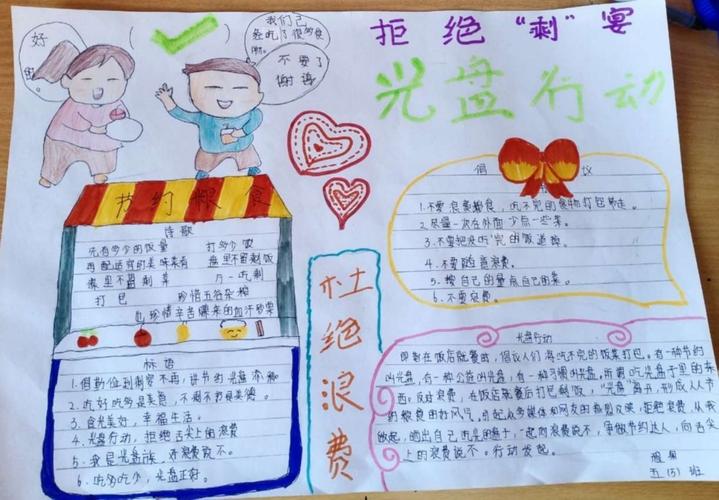 好
的。
我们已
经吃了很多食
物。
不要了
谢谢
拒绝“剩”宴
光盘行动
节约粮食
诗歌
先有多少的饭量 打多少饭
再配适宜的美味菜肴 盘里不留剩饭
桌里不留剩菜
打包 珍惜五谷杂粮
珍惜辛苦赚来的血汗钞票
标语
讲节约光盘
2. 吃好吃多是美音,不剩不扔是美德。
3. 食光美好,幸福生活。
4. 光盘行动,拒绝舌尖上的浪费
5. 我是光盘族 浪费说不。
6. 吃多吃少,光盘正好。
杜绝浪费
倡议
1. 不要浪费粮食,吃不完的食物打包带走。
2. 尽量一次在外面少点一些菜。
3. 不要把没吃完的饭道掉
4. 不要随音浪费。
5. 按自己的量点自己的菜。
6. 不要浪费。
光盘行动
即到在饭店就餐时,倡议人们将吃不完的饭菜打包。有一种节约
叫光盘,有一种公益叫光盘,有一种习惯叫光盘。所谓吃光盘子里的东
西。反对浪费,在饭店就餐后打包剩饭,“光盘”离开,形成人人节
约粮食的好风气。引起众多媒体和网友的热烈反映,拒绝浪费,从我
做起,晒出自己吃光的盘子,一起对浪费说不,争做节约达人,向舌尖
上的浪费说不。行动发起。
五(5)班